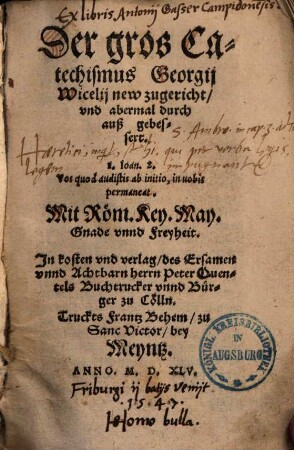 Ex libris Antonij Gasser Campidonensis
Der gros Ca-
techismus Georgij
Wicelij new zugericht/
vnd abermal durch
auß gebes-
sert.
1. Ioan. 2.
Vos quod audistis ab initio, in uobis
permaneat.
Mit Röm. Key. May.
Gnade vnnd Freyheit.
In kosten vnd verlag/des Ersamen
vnnd Achtbarn herrn Peter Quen-
tels Buchtrucker vnnd Bür-
ger zu Cölln.
Truckts Frantz Behem/ zu
Sanc Victor/ bey
Meyntz.
ANNO. M. D. XLV.
Friburgi ij batijs venijt
1547
Homo bulla.
KÖNIGL. KREISBIBLIOTHEK
IN
AUGSBURG